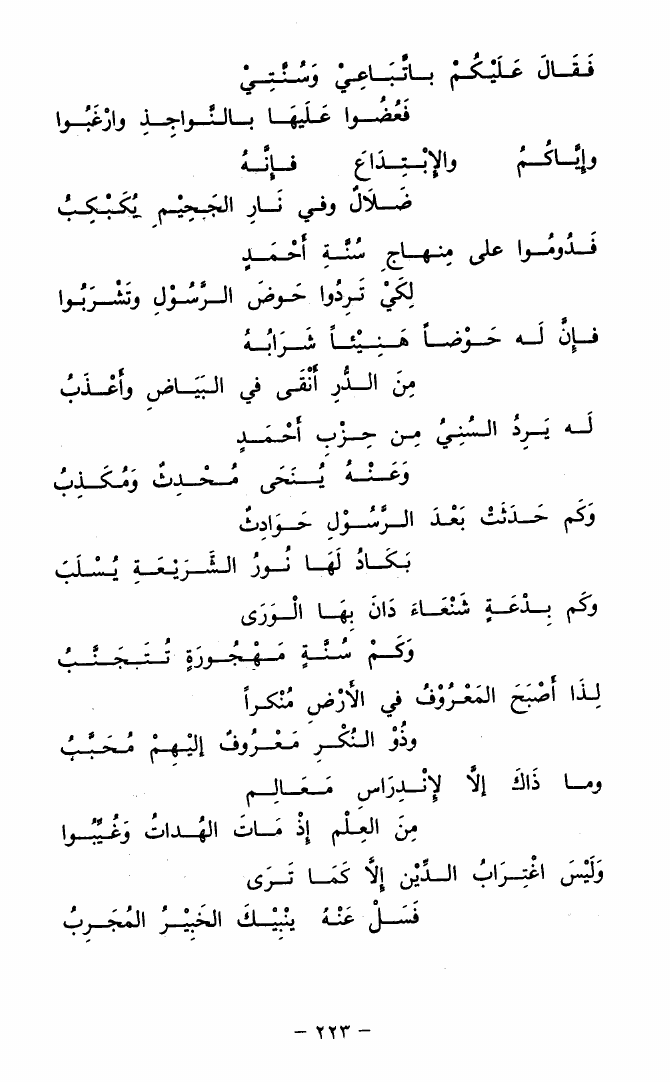 فَقَالَ عَلَيْكُمْ بِاتِّبَاعِيْ وَسُنَّتِيْ
فَعُضُوا عَلَيهَا بِالنَّواجِذِ وارْغَبُوا
وإيَّاكُمُ والإبْتِدَاعَ فإِنَّهُ
ضَلالٌ وفي نَارِ الجَحِيْمِ يُكَبْكِبُ
فَدُومُوا على مِنهاجِ سُنَّةِ أَحْمَدٍ
لِكَيْ تَرِدُوا حَوضَ الرَّسُوْلِ وتَشْرَبُوا
فإنَّ لَه حَوْضاً هَنِيْئاً شَرَابُهُ
مِنَ الدُّرِ أَنْقَى في البَيَاضِ وأَعْذَبُ
لَه يَرِدُ السُنِيُ مِن حِزْبِ أَحْمَدٍ
وَعَنْهُ يُنَحَى مُحْدِثٌ وَمُكَذِبُ
وَكَم حَدَثَتْ بَعْدَ الرَّسُوْلِ حَوَادِثٌ
يَكَادُ لَهَا نُورُ الشَّرِيْعَةِ يُسْلَبَ
وكَم بِدْعَةٍ شَنْعَاءَ دَانَ بِهَا الْوَرَى
وَكَمْ سُنَّةٍ مَهْجُورَةٍ تُتَجَنَّبُ
لِذَا أَصْبَحَ المَعْرُوْفُ في الأَرْضِ مُنْكَراً
وذُوْ النُكْرِ مَعْرُوفٌ إليْهِمْ مُحَبَّبُ
وما ذَاكَ إلاَّ لإنْدِرَاسِ مَعَالِمٍ
مِنَ العِلْمِ إذْ مَاتَ الهُداتُ وَغُيِّبُوا
وَلَيْسَ اغْتِرَابُ الدِّيْنِ إلاَّ كَمَا تَرَى
فَسَلْ عَنْهُ يُنْبِيْكَ الخَبِيْرُ المُجَرِبُ
– ٢٢٣ –